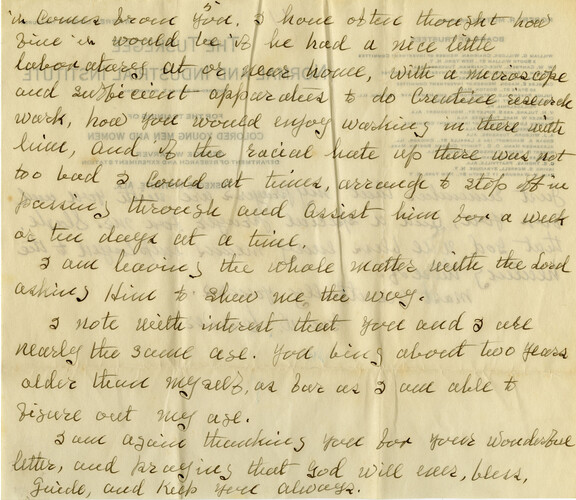 it comes from you. I have often thought how
fine it would be if he had a nice little
laboratory at or near home, with a microscope
and sufficient apparatus to do Creative research
work, how you would enjoy working in there with
him, and if the racial hate up there was not
too bad I could at times, arrange to stop off in
passing through and assist him for a week
or ten days at a time.
I am leaving the whole matter with the Lord
asking Him to show me the way.
I note with interest that you and I are
nearly the same age. You being about two years
older than myself, as far as I am able to
figure out my age.
I am again thanking you for your wonderful
letter, and praying that God will ever, bless,
guide, and keep you always.